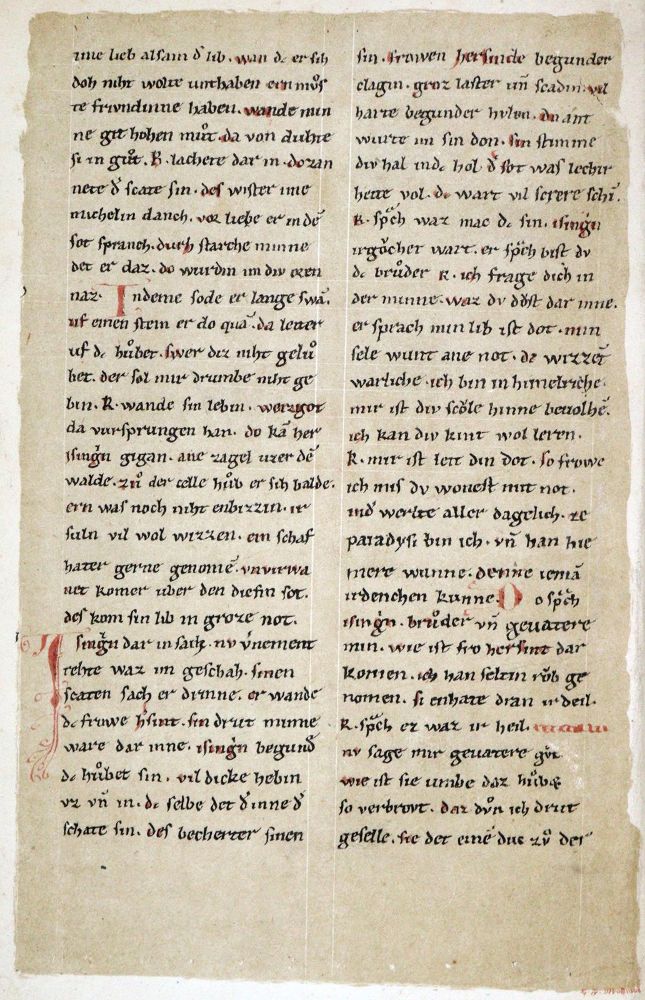 ime lieb alsam d͛ lib. wan d͛ er sih
doh niht wolte unthaben ern můs
te friundinne haben. wande min
ne git hohen můt. da von duhte
si in gůt. R. lachete dar in. do zan
nete d͛ scate sin. des wister ime
michelin danch. vor liebe er in dē
sot spranch. durh starche minne
det er daz. do wurdin im div oren
naz. Indeme sode er lange swā.
uf einen stein er do quā. da leiter
uf dc hůbet. swer diz niht gelů
bet. der sol mir drumbe niht ge
bin. R. wande sin lebin. weizgot
da vursprungen han. do kā her
isingrin gigan. ane zagel uzer dē
walde. zů der celle hůb er sih balde.
ern was noch niht enbizzin. ir
suln vil wol wizzen. ein schaf
hater gerne genomē. vnvirwa
net komer uber den diefin sot.
des kom sin lib in groze not.
Isingrin dar in sach. nv v͛nement
rehte waz im geschah. sinen
scaten sach er dinne. er wande
dc frowe h͛sint. sin drut minne
ware dar inne. isingrin begund͛
dc hůbet sin. vil dicke hebin
vz vn̄ in. dc selbe det d͛ inne d͛
schate sin. des becherter sinen
sin. frowen hersinde begunder
clagin. groz laster vn̄ scadin. vil
harte begunder hvlen. do ant
wurte im sin don. sin stimme
div hal in dc hol. d͛ sot was lechir
heite vol. dc wart vil serere schī.
R. sp͛ch waz mac dc sin. isingrin
irgocher wart. er sp͛ch bist dv
dc brůder R. ich frage dich in
der minne. waz dv důst dar inne.
er sprach min lib ist dot. min
sele wunt ane not. dc wizzest
warliche. ich bin in himelriche.
mir ist div scůle hinne bevolhē.
ich kan div kint wol leren.
R. mir ist leit din dot. so frowe
ich mis dv wonest mit not.
ind͛ werlte aller dagelich. ze
paradysi bin ich. vn̄ han hie
mere wunne. denne iemā
irdenchen kunne. Do sp͛ch
isingrin. brůder vn̄ gevatere
min. wie ist fro hersint dar
komen. ich han seltin rŏb ge
nomen. si enhate dran ir deil.
R. sp͛ch ez waz ir heil.
nv sage mir gevatere gůt.
wie ist sie umbe daz hůbet
so verbrovt. daz dv͛n ich drut
geselle. sie det einē duc zů der